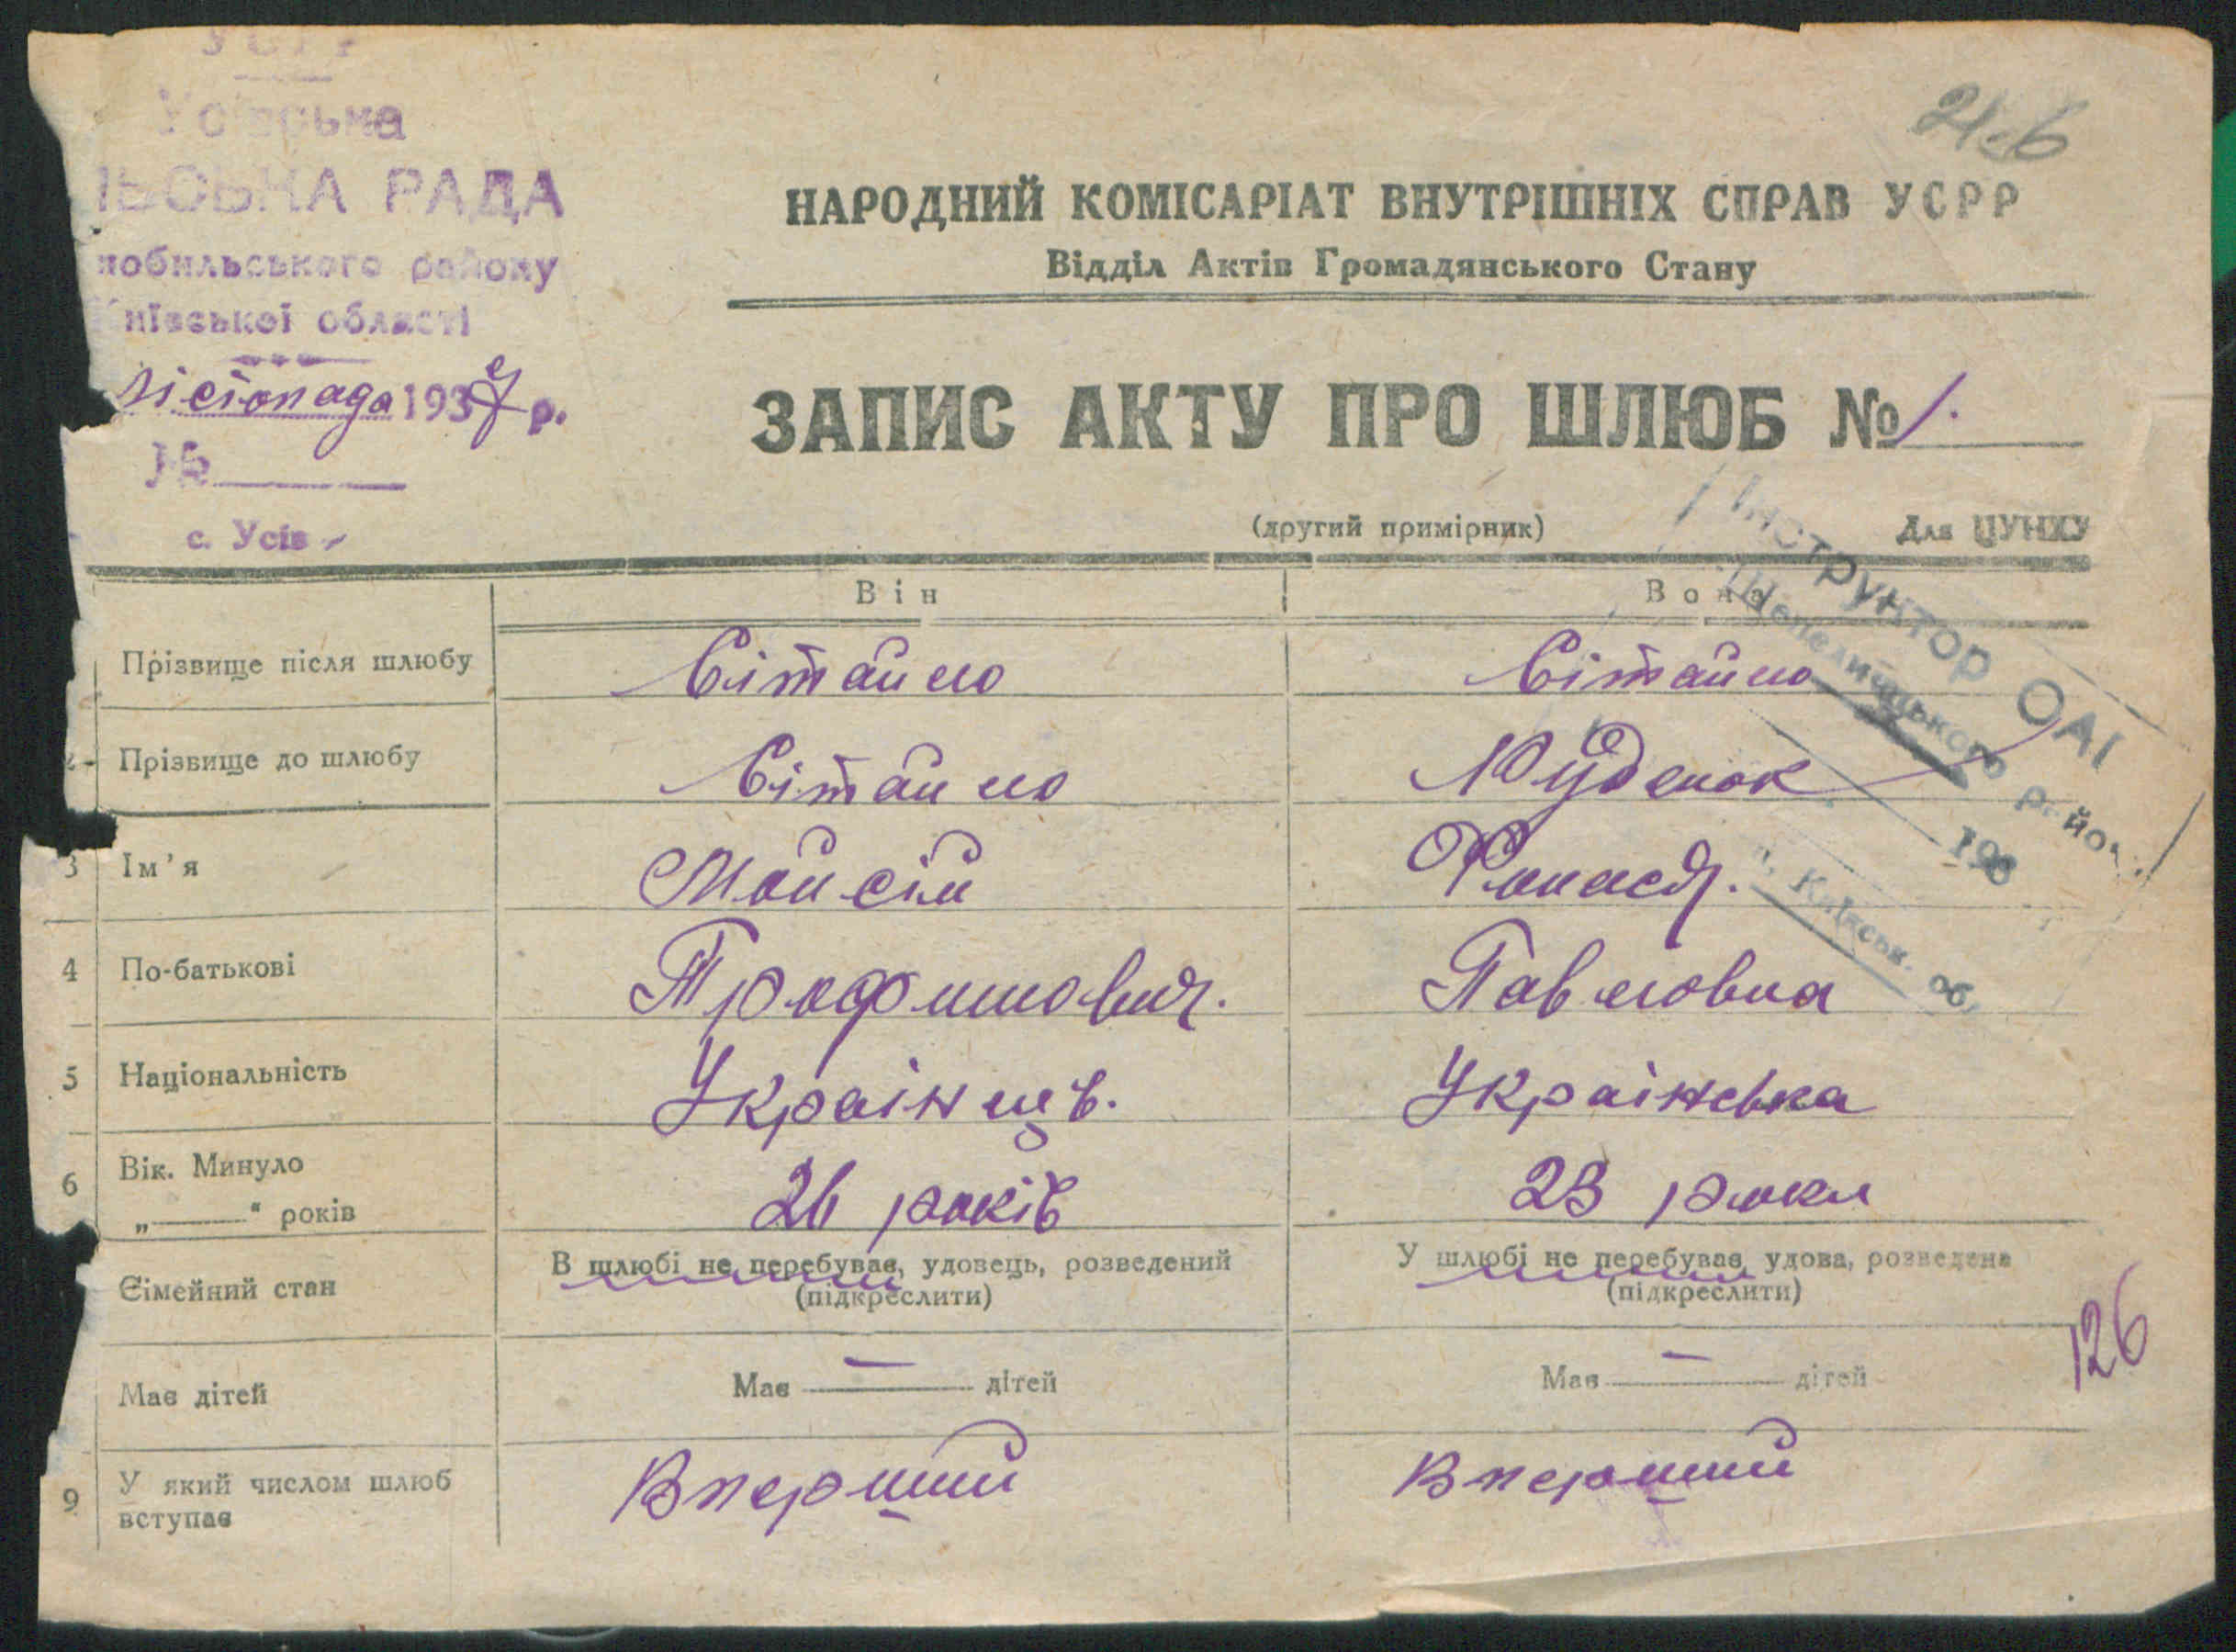 УСРР
Усівська
ЛЬСЬКА РАДА
нобильського району
Київської області
листопада 1937 р.
№
с. Усів
21.6
НАРОДНИЙ КОМІСАРІАТ ВНУТРІШНІХ СПРАВ УСРР
Відділ Актів Громадянського Стану
ЗАПИС АКТУ ПРО ШЛЮБ № 1.
(другий примірник)
Для ЦУНХУ
Інструктор ОАГ
району
193
Київськ. об.
Він
Вона
Прізвище після шлюбу
Сітайло
Сітайло
Прізвище до шлюбу
Сітайло
3 Ім'я
Мойсій
4 По-батькові
Трофимович.
Павловна
5 Національність
Українець.
Українська
6 Вік. Минуло
„ “ років
26 років
23 роки
Сімейний стан
В шлюбі не перебував, удовець, розведений
(підкреслити)
У шлюбі не перебував, удова, розведена
(підкреслити)
126
Має дітей
Має — дітей
Має — дітей
9 У який числом шлюб
вступав
Вперший
Вперший